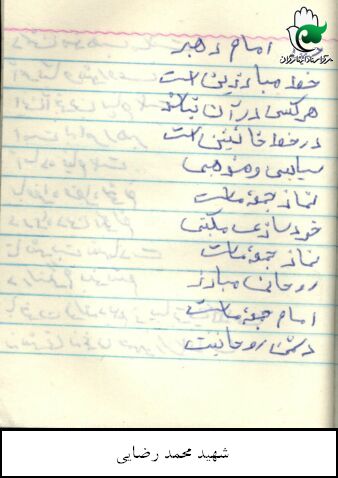 امام رهبر
خط مبارزین است
هر کسی در آن نباشد
در خط خائنین است
سیاسی و مذهبی
نماز جمعه ماست
خودسازی مکتبی
نماز جمعه ماست
روحانی مبارز
امام جمعه ماست
دشمن روحانیت
شهید محمد رضایی